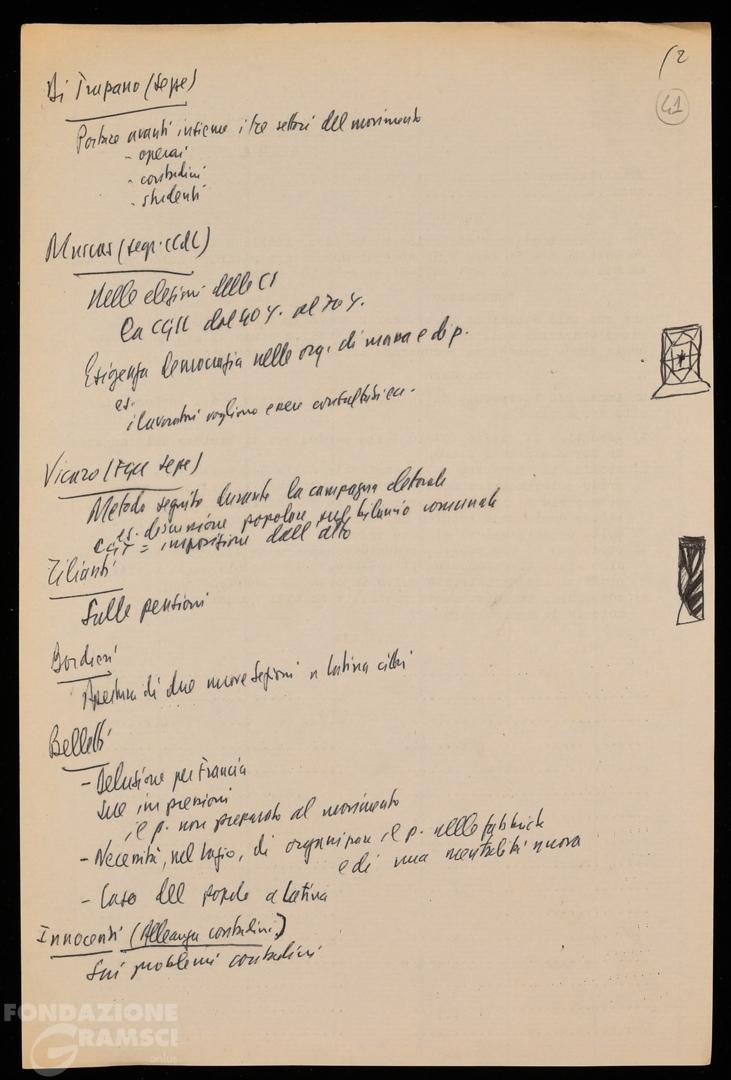 12
41
Di Trapano (Sezze)
Portare avanti insieme i tre settori del movimento
- operai
- contadini
- studenti
Muscas (segr. CCdL)
Nelle elezioni delle CI
la CGIL dal 40 %. al 70 %.
Esigenza democrazia nelle org. di massa e di p.
es.
i lavoratori vogliono essere
Vicaro (FGCI Sezze)
Metodo seguito durante la campagna elettorale
es. discussione popolare sul bilancio comunale
= imposizione dall'alto
Zilianti
Sulle pensioni
Bordieri
Apertura di due nuove sezioni a Latina città
Belletti
- Delusione per Francia
Sue impressioni
il p. non preparato al movimento
- Necessità, nel Lazio, di organizzare il p. nelle fabbriche
e di una mentalità nuova
- Casa del popolo a Latina
Innocenti (Alleanza contadini)
Sui problemi contadini
FONDAZIONE
GRAMSCI
onlus